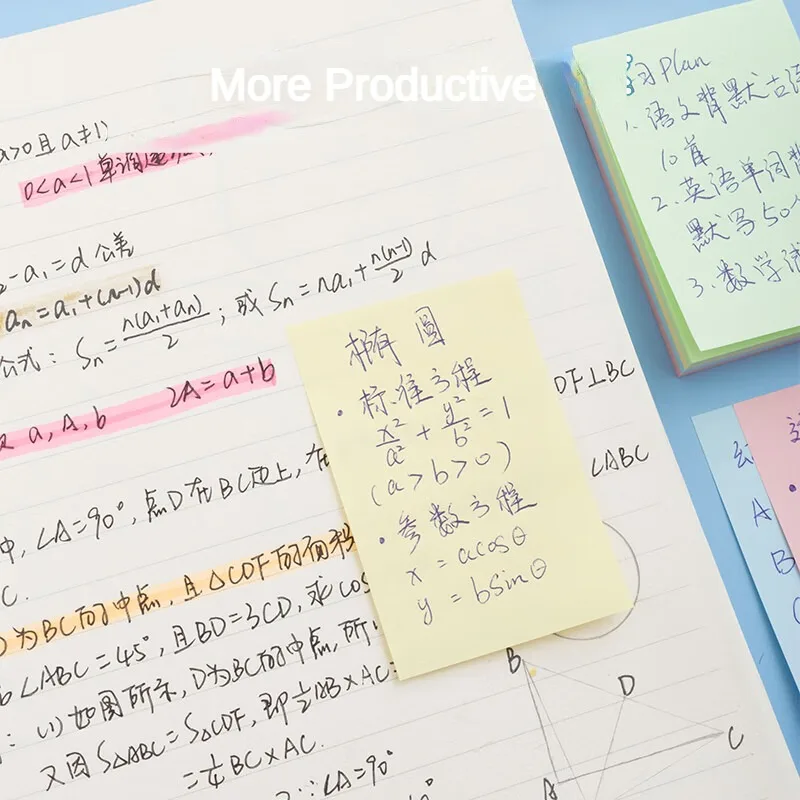 More Productive
a>0且a≠1)
0<a<1单调递
2-a₁=d 公差
aₙ=a₁+(n-1)d
公式: Sₙ=n(a₁+aₙ)/2 ; 或 Sₙ=na₁+n(n-1)/2 d
a, A, b 2A=a+b
中, ∠A=90°, 点D在BC边上, 在
C.
D为BC的中点, 且△CDF的面积
∠ABC=45°, 且BD=3CD, 求cos
: (1) 如图所示, D为BC的中点, 所以
又因S△ABC=S△CDF, 即½AB×AC=
=¼BC×AC.
∵∠A=90°
DF⊥BC
∠ABC
椭圆
• 标准方程
x²/a²+y²/b²=1
(a>b>0)
• 参数方程
x=acosθ
y=bsinθ
B
D
C
A
习Plan
1. 语文背默古诗
10首
2. 英语单词背
默写50个
3. 数学
A
B